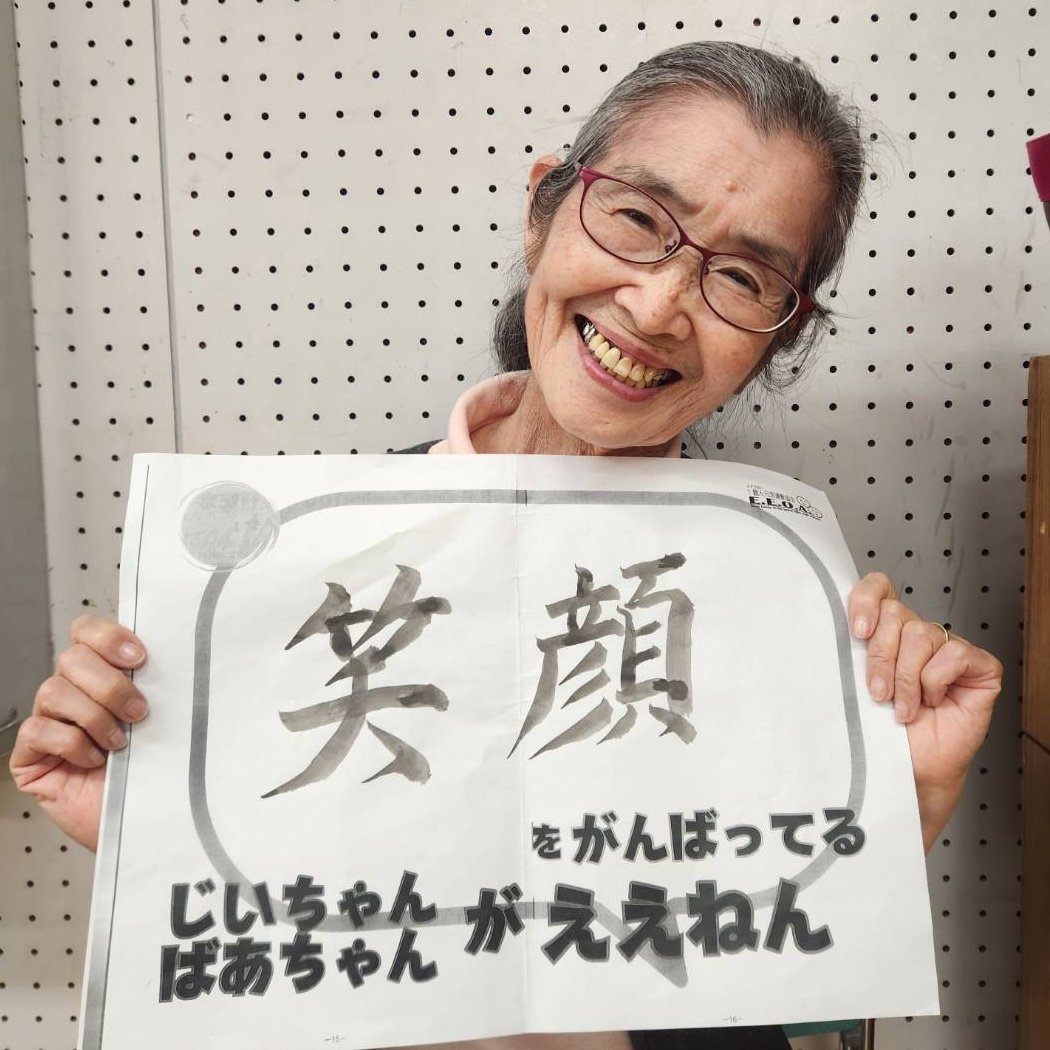 E.E.O.A
笑顔
をがんばってる
じいちゃん
ばあちゃん
がええねん
-15-
-16-